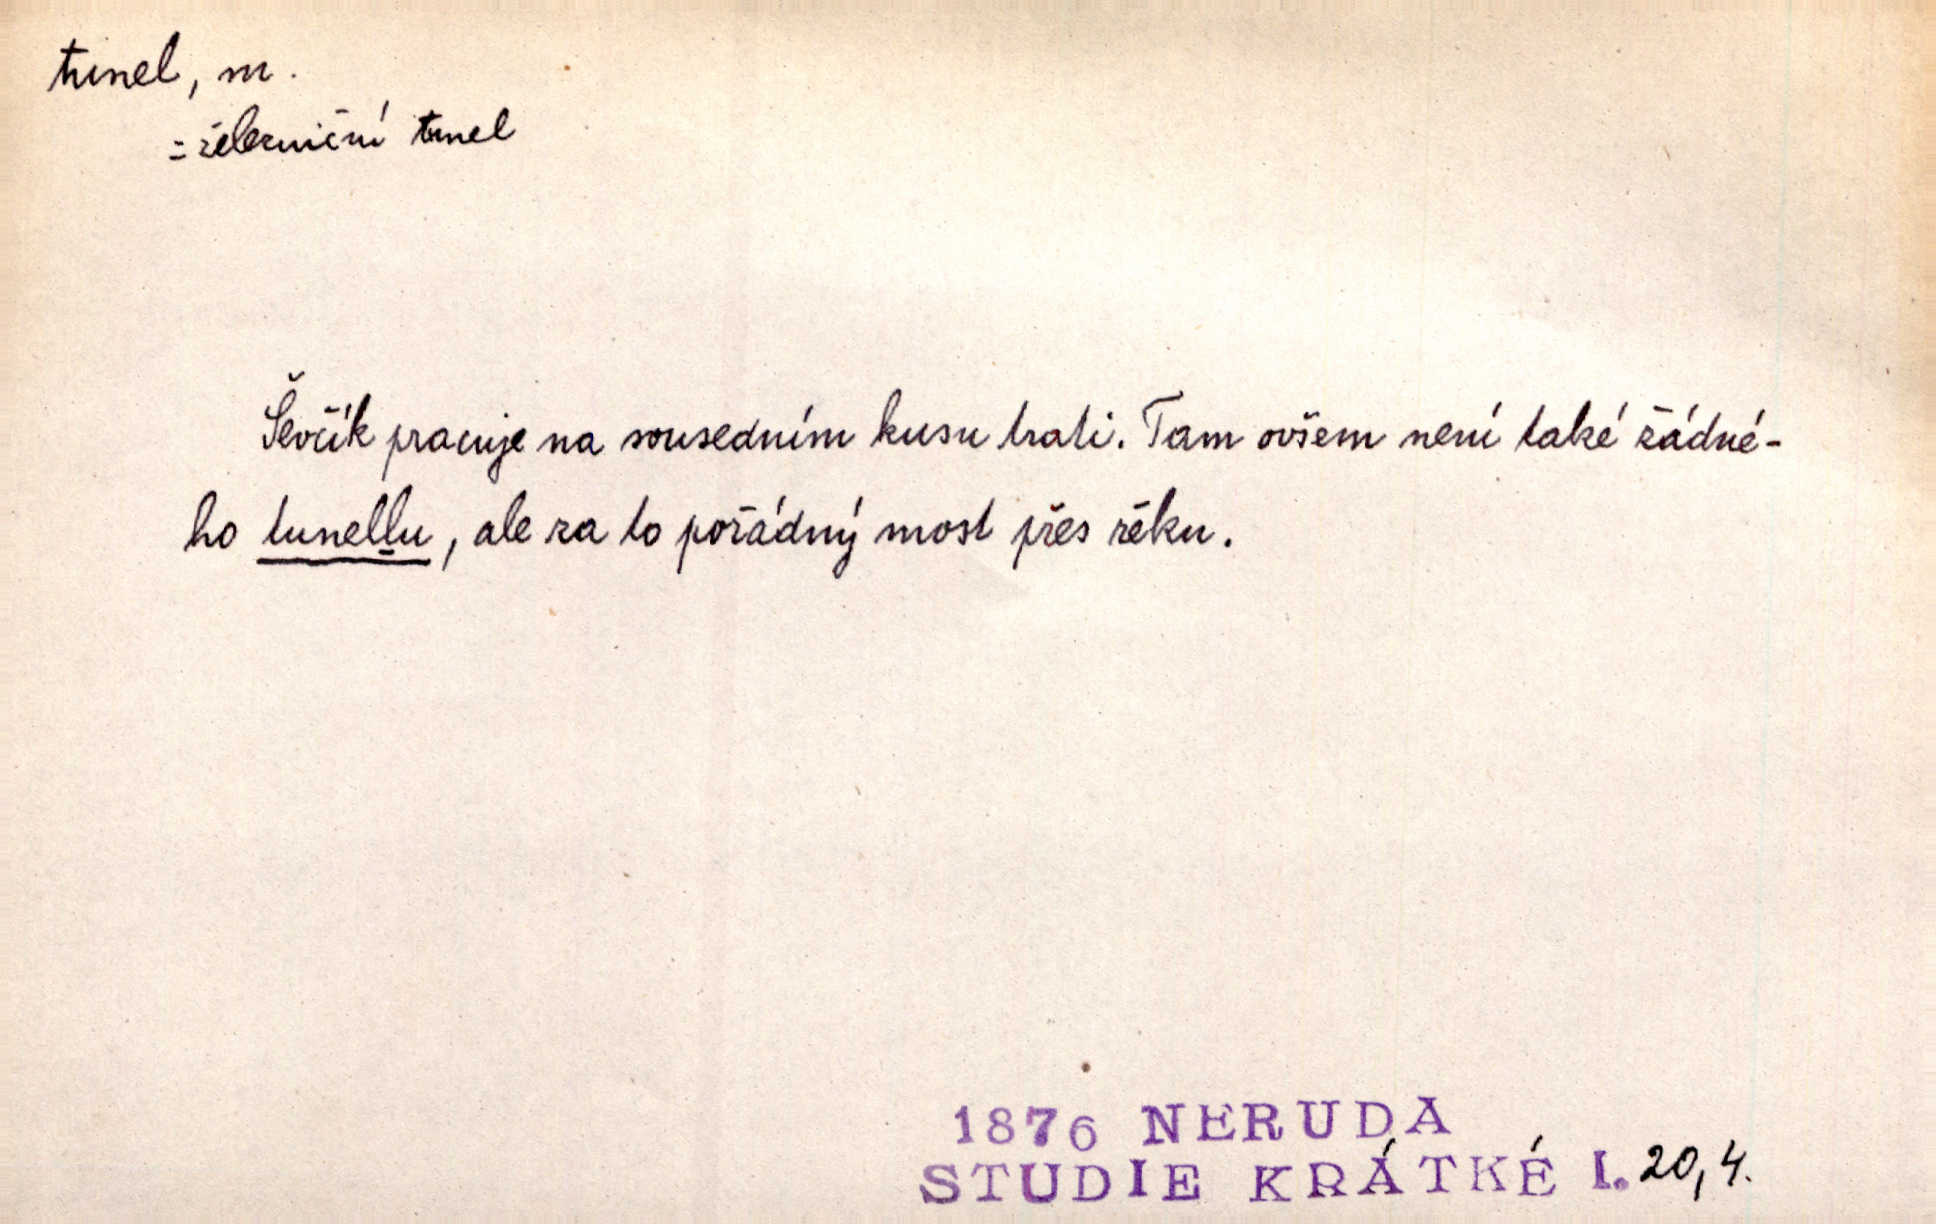 tunel, m.
= železniční tunel
Ševčík pracuje na sousedním kusu trati. Tam ovšem není také žádné-
ho tunellu, ale za to pořádný most přes řéku.
1876 NERUDA
STUDIE KRÁTKÉ I. 20,4.